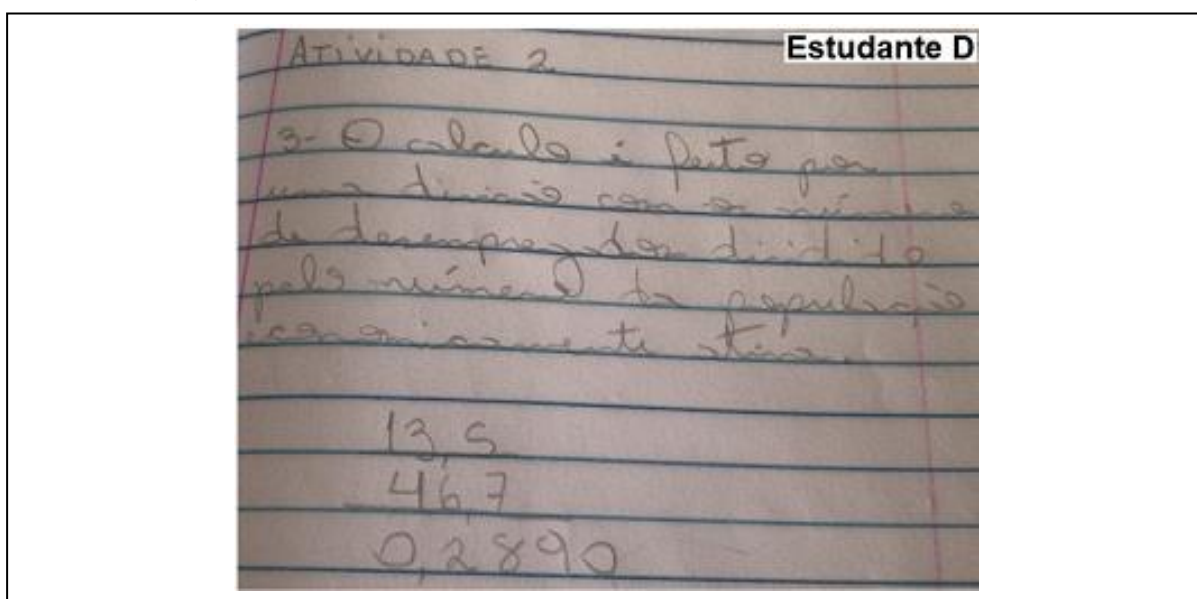 Estudante D
ATIVIDADE 2
3- O calculo é feito por
uma divisão com o número
de desempregados dividido
pelo número da população
economicamente ativa.
13,5
46,7
0,2890